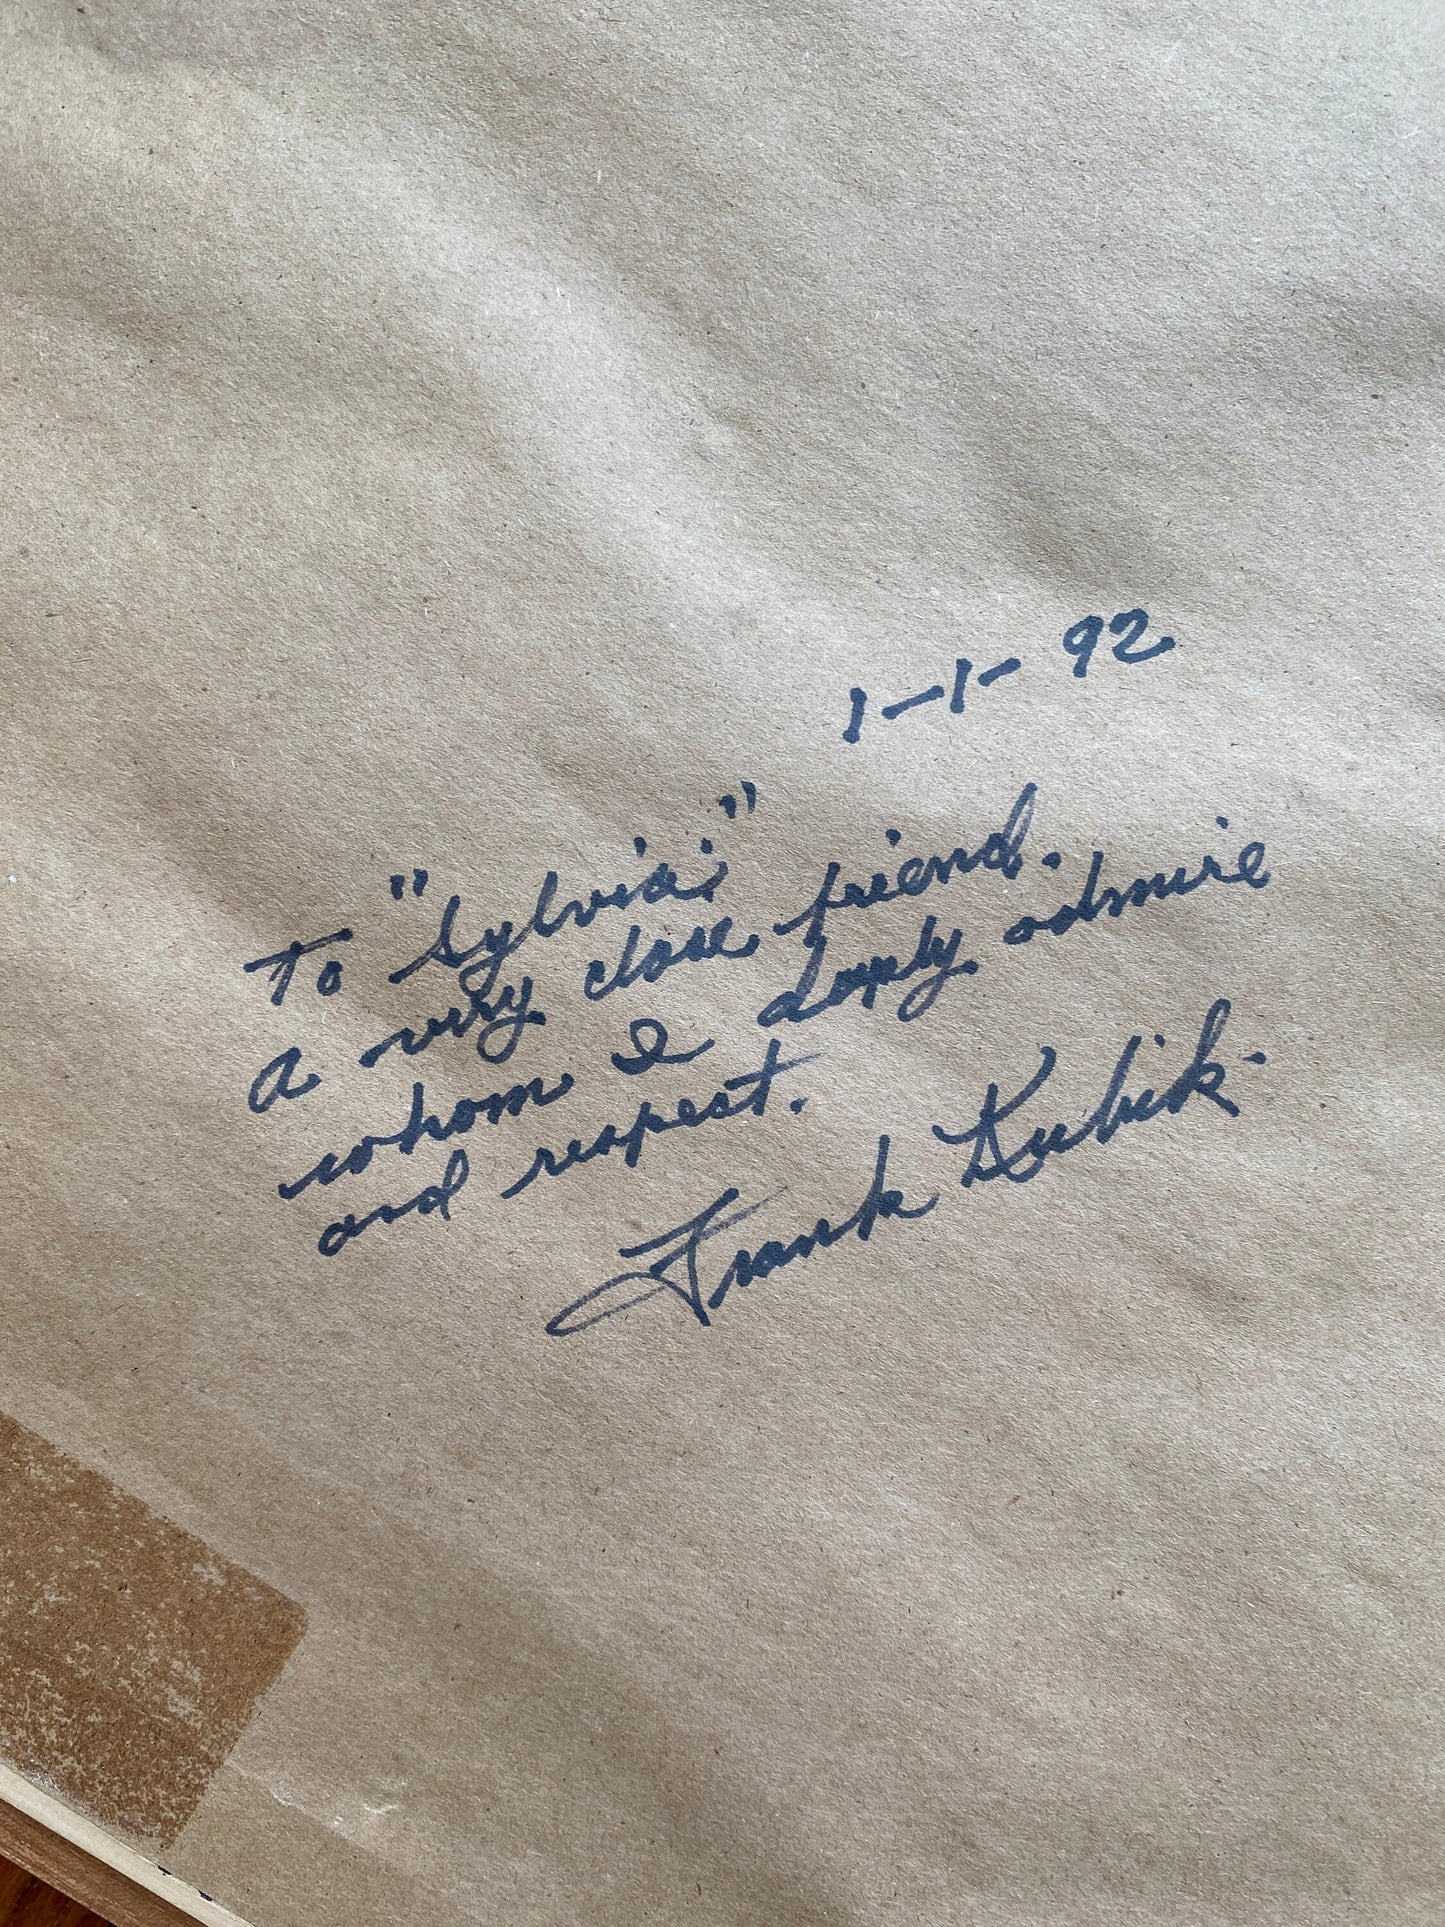 1-1-92
To "Sylvia;"
a very close friend.
whom I deeply admire
and respect.
Frank Kubik